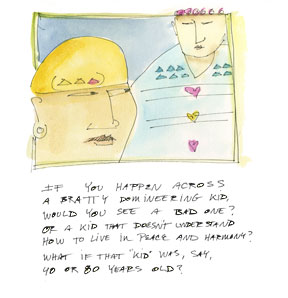 IF YOU HAPPEN ACROSS
A BRATTY DOMINEERING KID,
WOULD YOU SEE A BAD ONE?
OR A KID THAT DOESN'T UNDERSTAND
HOW TO LIVE IN PEACE AND HARMONY?
WHAT IF THAT "KID" WAS, SAY,
40 OR 80 YEARS OLD?